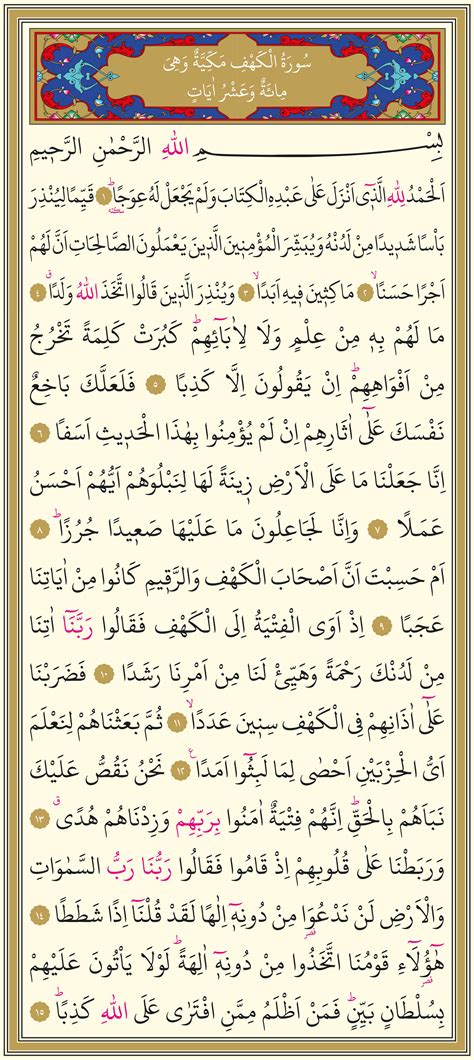 سُورَةُ الْكَهْفِ مَكِّيَّةٌ وَهِىَ
مِائَةٌ وَعَشْرُ اٰيَاتٍ
بِسْمِ اللّٰهِ الرَّحْمٰنِ الرَّح۪يمِ
اَلْحَمْدُ لِلّٰهِ الَّذ۪ٓي اَنْزَلَ عَلٰى عَبْدِهِ الْكِتَابَ وَلَمْ يَجْعَلْ لَهُ عِوَجًاۜ ﴿١﴾ قَيِّمًا لِيُنْذِرَ
بَاْسًا شَد۪يدًا مِنْ لَدُنْهُ وَيُبَشِّرَ الْمُؤْمِن۪ينَ الَّذ۪ينَ يَعْمَلُونَ الصَّالِحَاتِ اَنَّ لَهُمْ
اَجْرًا حَسَنًاۙ ﴿٢﴾ مَاكِث۪ينَ ف۪يهِ اَبَدًاۙ ﴿٣﴾ وَيُنْذِرَ الَّذ۪ينَ قَالُوا اتَّخَذَ اللّٰهُ وَلَدًاۗ ﴿٤﴾
مَا لَهُمْ بِه۪ مِنْ عِلْمٍ وَلَا لِاٰبَٓائِهِمْۜ كَبُرَتْ كَلِمَةً تَخْرُجُ
مِنْ اَفْوَاهِهِمْۜ اِنْ يَقُولُونَ اِلَّا كَذِبًا ﴿٥﴾ فَلَعَلَّكَ بَاخِعٌ
نَفْسَكَ عَلٰٓى اٰثَارِهِمْ اِنْ لَمْ يُؤْمِنُوا بِهٰذَا الْحَد۪يثِ اَسَفًا ﴿٦﴾
اِنَّا جَعَلْنَا مَا عَلَى الْاَرْضِ ز۪ينَةً لَهَا لِنَبْلُوَهُمْ اَيُّهُمْ اَحْسَنُ
عَمَلًا ﴿٧﴾ وَاِنَّا لَجَاعِلُونَ مَا عَلَيْهَا صَع۪يدًا جُرُزًاۜ ﴿٨﴾
اَمْ حَسِبْتَ اَنَّ اَصْحَابَ الْكَهْفِ وَالرَّق۪يمِ كَانُوا مِنْ اٰيَاتِنَا
عَجَبًا ﴿٩﴾ اِذْ اَوَى الْفِتْيَةُ اِلَى الْكَهْفِ فَقَالُوا رَبَّنَٓا اٰتِنَا
مِنْ لَدُنْكَ رَحْمَةً وَهَيِّئْ لَنَا مِنْ اَمْرِنَا رَشَدًا ﴿١٠﴾ فَضَرَبْنَا
عَلٰٓى اٰذَانِهِمْ فِي الْكَهْفِ سِن۪ينَ عَدَدًاۙ ﴿١١﴾ ثُمَّ بَعَثْنَاهُمْ لِنَعْلَمَ
اَيُّ الْحِزْبَيْنِ اَحْصٰى لِمَا لَبِثُٓوا اَمَدًا۟ ﴿١٢﴾ نَحْنُ نَقُصُّ عَلَيْكَ
نَبَاَهُمْ بِالْحَقِّۜ اِنَّهُمْ فِتْيَةٌ اٰمَنُوا بِرَبِّهِمْ وَزِدْنَاهُمْ هُدًىۗ ﴿١٣﴾
وَرَبَطْنَا عَلٰى قُلُوبِهِمْ اِذْ قَامُوا فَقَالُوا رَبُّنَا رَبُّ السَّمٰوَاتِ
وَالْاَرْضِ لَنْ نَدْعُوَ۬ا مِنْ دُونِه۪ٓ اِلٰهًا لَقَدْ قُلْنَٓا اِذًا شَطَطًا ﴿١٤﴾
هٰٓؤُ۬لَٓاءِ قَوْمُنَا اتَّخَذُوا مِنْ دُونِه۪ٓ اٰلِهَةًۜ لَوْلَا يَاْتُونَ عَلَيْهِمْ
بِسُلْطَانٍ بَيِّنٍۜ فَمَنْ اَظْلَمُ مِمَّنِ افْتَرٰى عَلَى اللّٰهِ كَذِبًاۜ ﴿١٥﴾